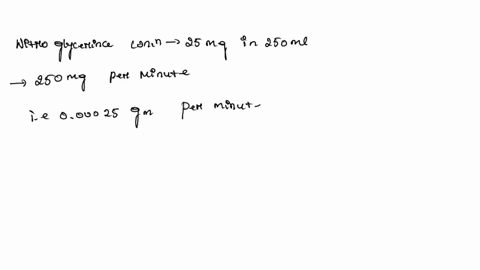 Nitro glycerince conⁿ → 25 mg in 250 ml
→ 250 mg per minute
i.e 0.00025 gm per minut